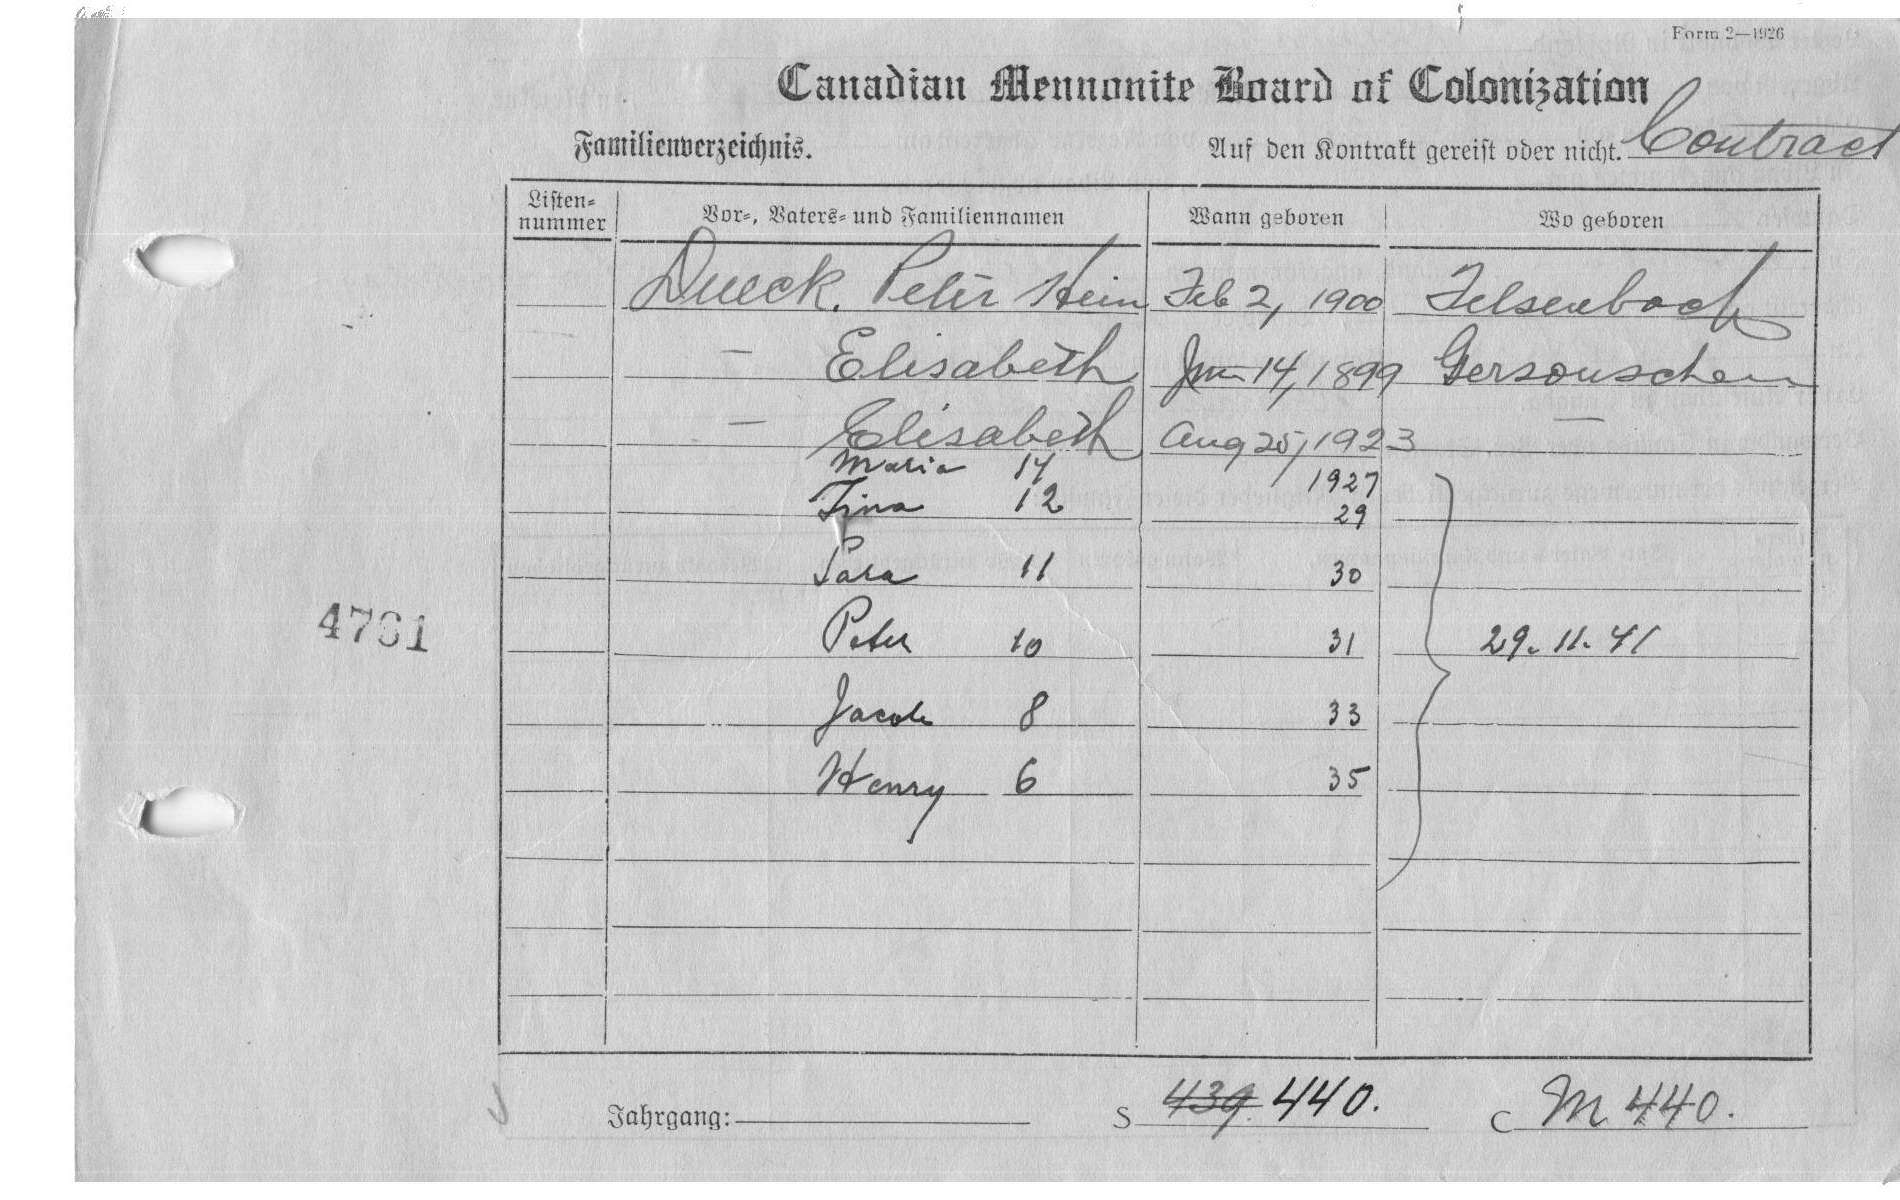 Form 2—1926
Canadian Mennonite Board of Colonization
Familienverzeichnis. Auf den Kontrakt gereist oder nicht. Contract
Listen-nummer Vor-, Vaters- und Familiennamen Wann geboren Wo geboren
Dueck. Peter Hein Feb 2, 1900 Felsenbach
— Elisabeth 14, 1899
— Elisabeth Aug 25, 1923 —
Maria 14 1927
Tina 12 29
Sara 11 30
4761
Peter 10 31 29. 11. 41
Jacob 8 33
Henry 6 35
Jahrgang: S 439 440. C M 440.